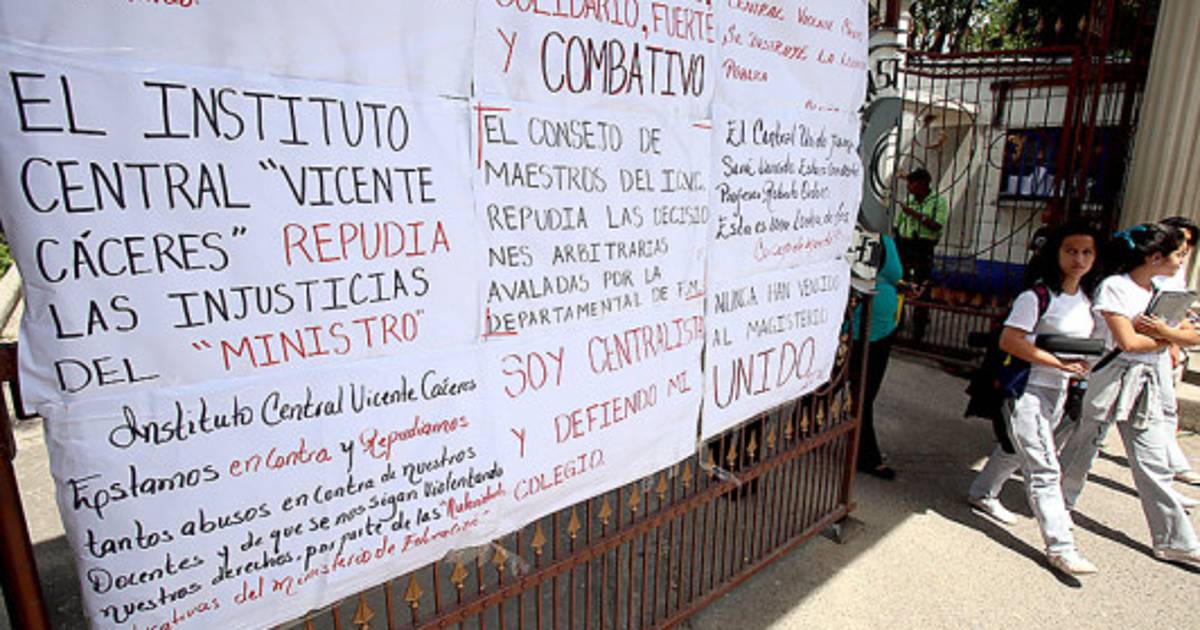 SOLIDARIO, FUERTE
Y COMBATIVO
CENTRAL VICENTE
SE DESTRUYE LA
PÚBLICA
EL INSTITUTO
CENTRAL "VICENTE
CÁCERES" REPUDIA
LAS INJUSTICIAS
DEL "MINISTRO"
EL CONSEJO DE
MAESTROS DEL ICVC.
REPUDIA LAS DECISIO
NES ARBITRARIAS
AVALADAS POR LA
DEPARTAMENTAL DE F.M.
El Central Unido
Será Vencido
Profesor Roberto
Esta es una Lucha de
NUNCA HAN VENCIDO
AL MAGISTERIO
UNIDO.
SOY CENTRALISTA
Y DEFIENDO MI
COLEGIO.
Instituto Central Vicente Cáceres
Estamos en contra y Repudiamos
tantos abusos en contra de nuestros
Docentes y de que se nos sigan Violentando
nuestros derechos por parte de las
del Ministerio de Educación"